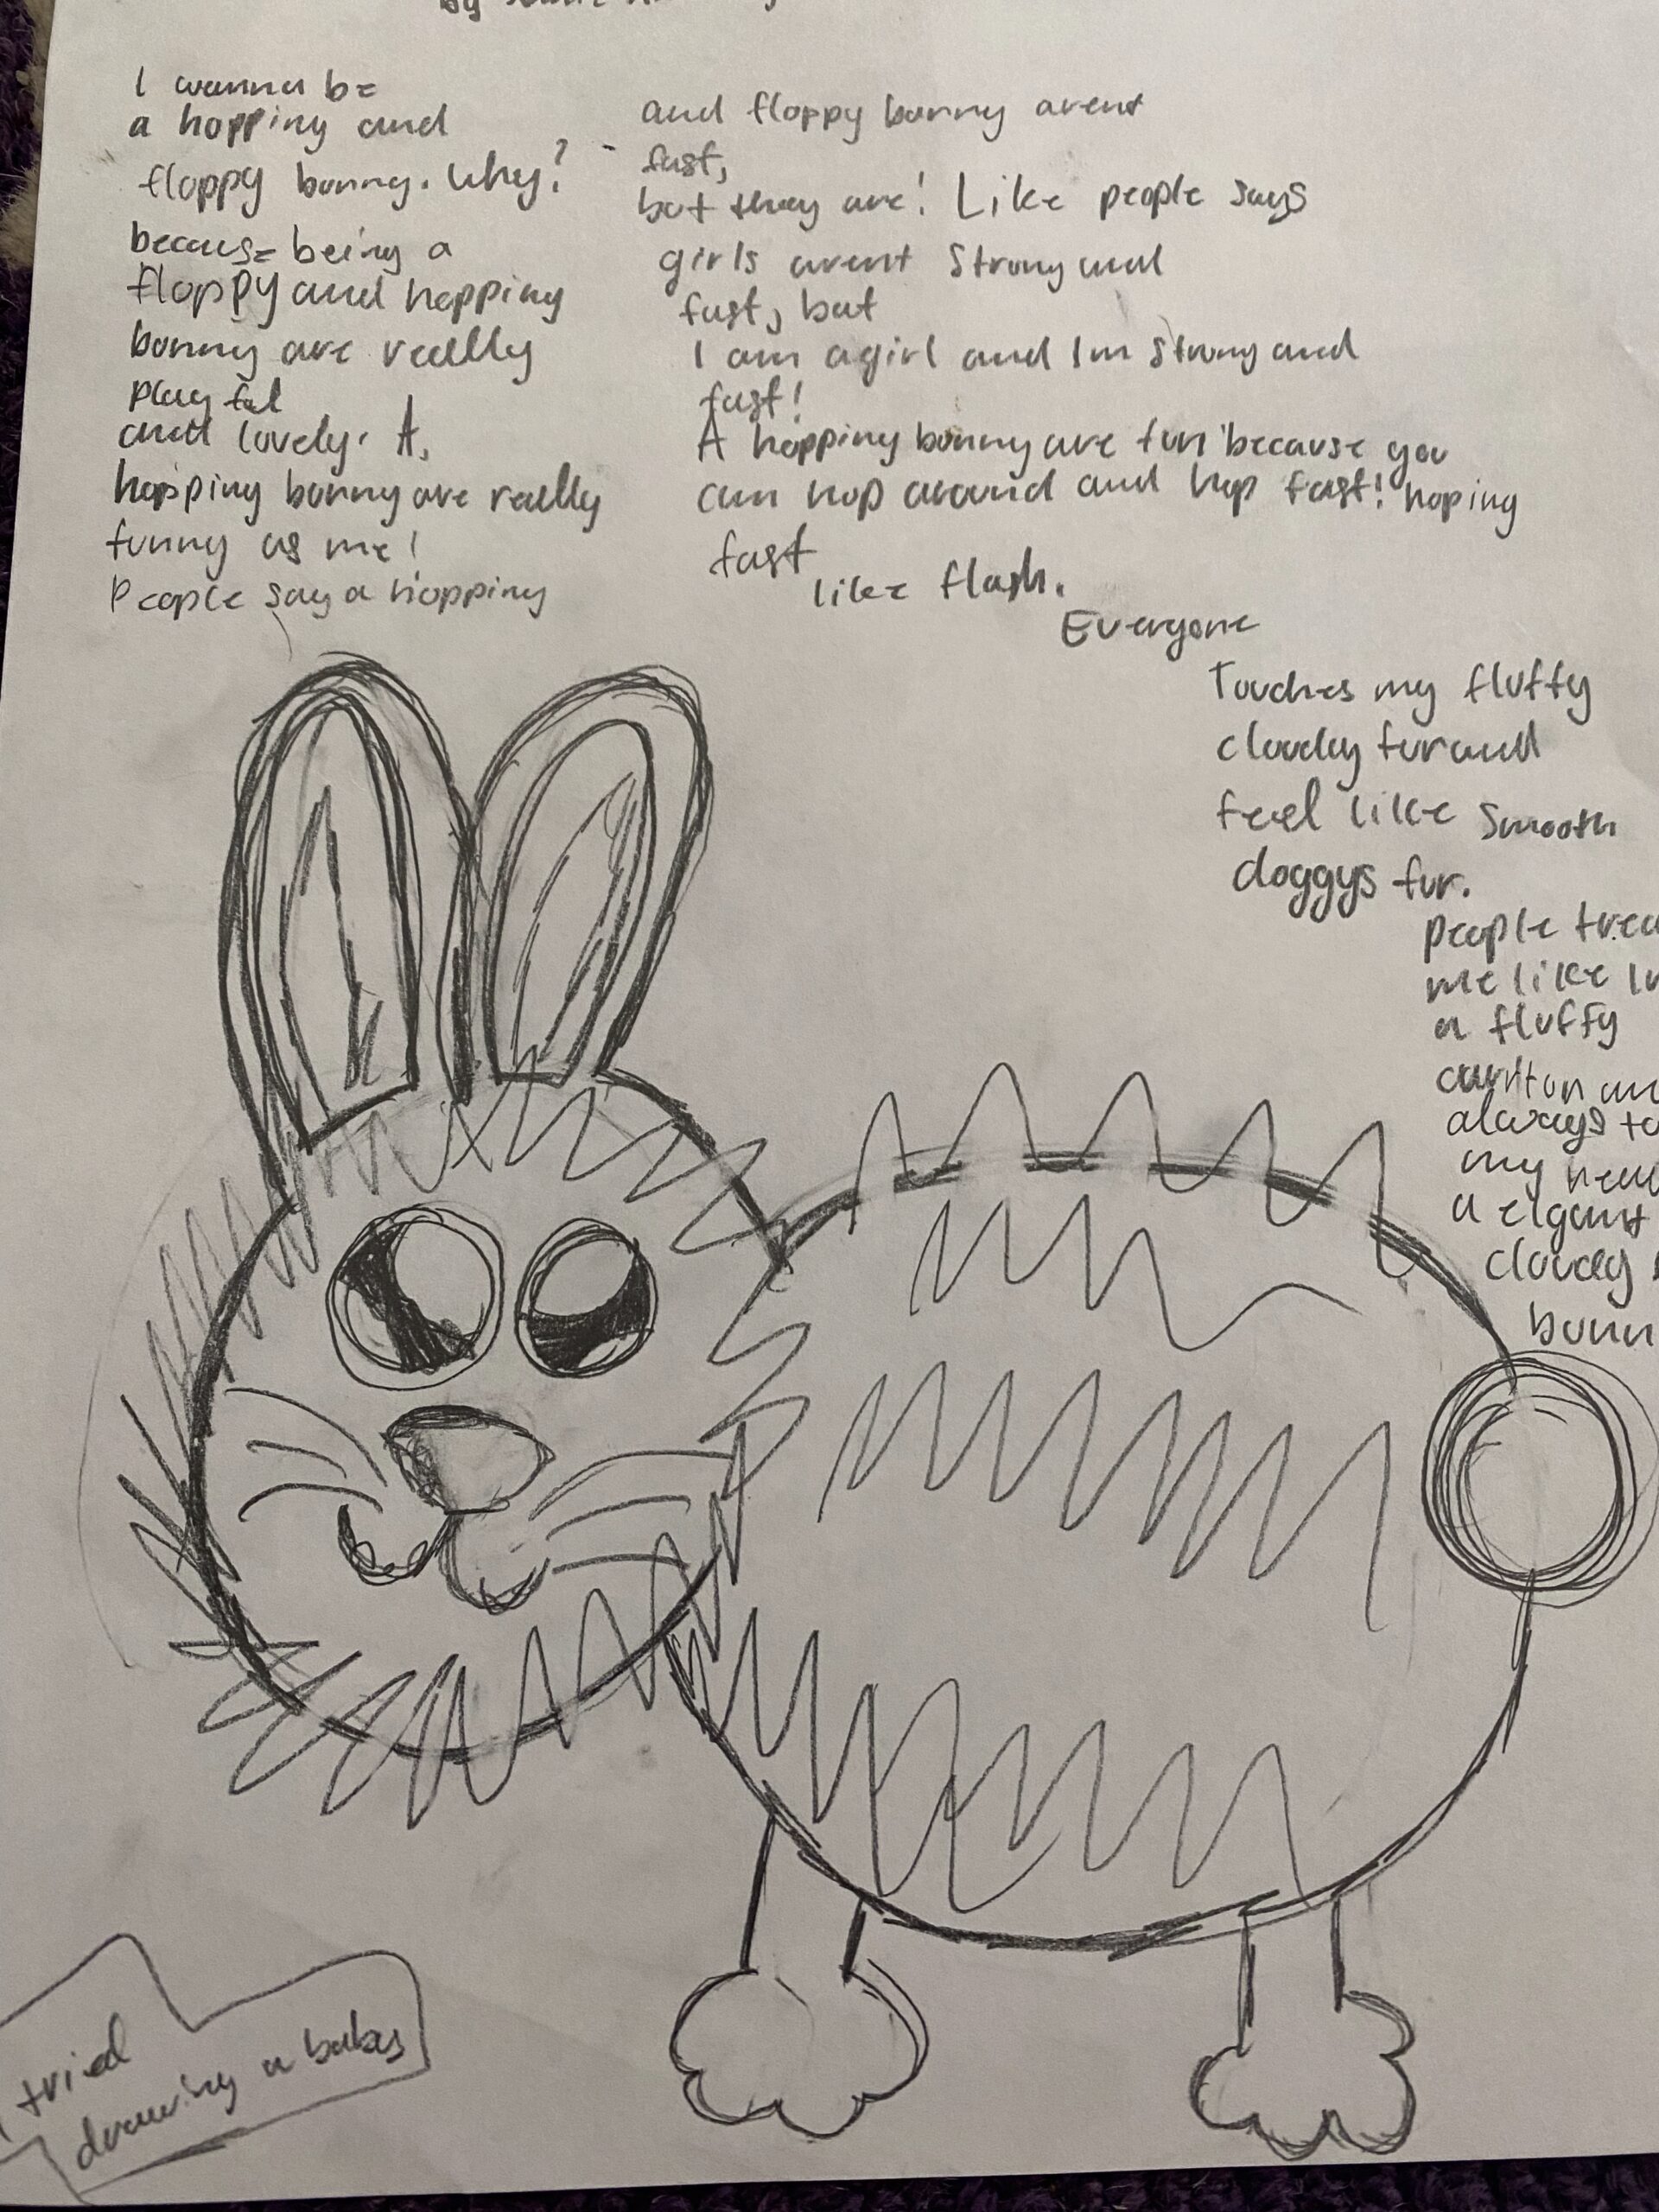 By
I wanna be
a hopping and
floppy bunny. Why?
because being a
floppy and hopping
bunny are really
playful
and lovely. A,
hopping bunny are really
funny as me!
People say a hopping
and floppy bunny arent
fast,
but they are! Like people says
girls arent strong and
fast, but
I am a girl and Im strong and
fast!
A hopping bunny are fun because you
can hop around and hop fast! hoping
fast
like flash.
Everyone
Touches my fluffy
cloudy fur and
feel like smooth
doggys fur.
people trea
me like Im
a fluffy
always to
my head
a elgant
cloudy
bunn
tried
drawing a baby